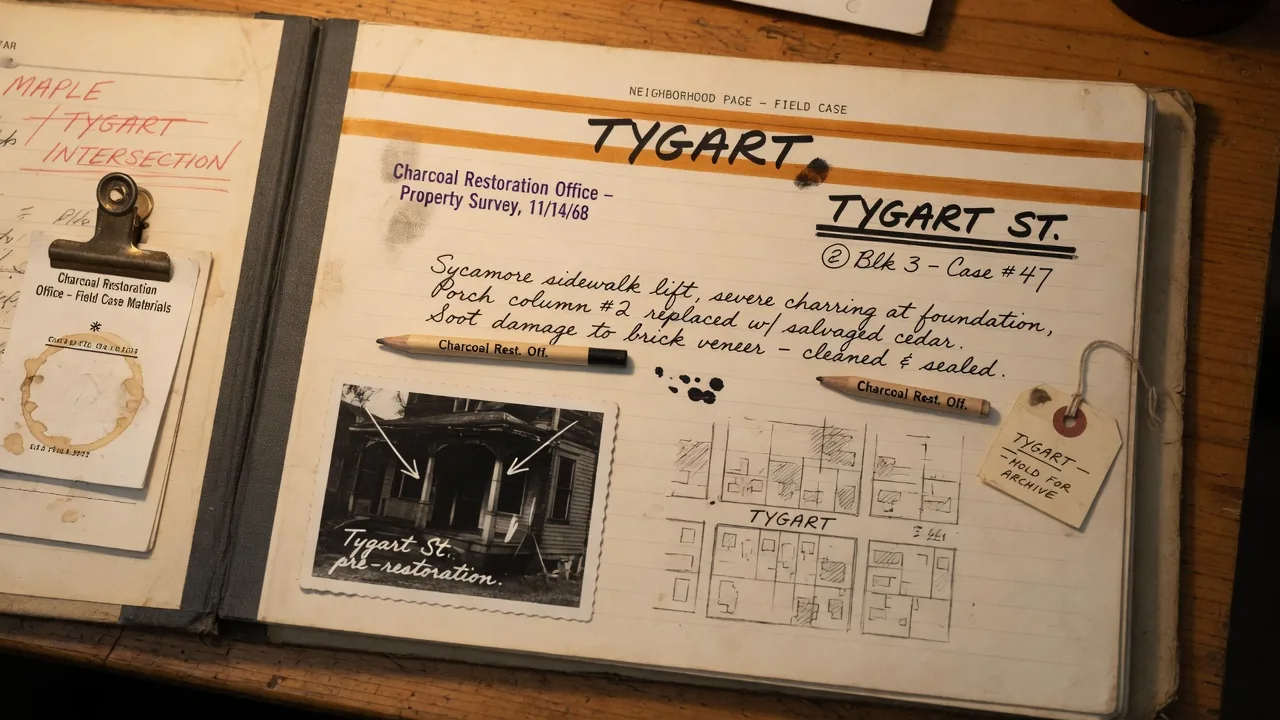 MAPLE
/ TYGART
INTERSECTION
Charcoal Restoration
Office – Field Case Materials
*
NEIGHBORHOOD PAGE – FIELD CASE
TYGART
Charcoal Restoration Office –
Property Survey, 11/14/68
TYGART ST.
② Blk 3 – Case #47
Sycamore sidewalk lift, severe charring at foundation,
Porch column #2 replaced w/ salvaged cedar.
Soot damage to brick veneer – cleaned & sealed.
Charcoal Rest. Off.
Charcoal Rest. Off.
Tygart St.
pre-restoration.
TYGART
TYGART –
– HOLD FOR
ARCHIVE